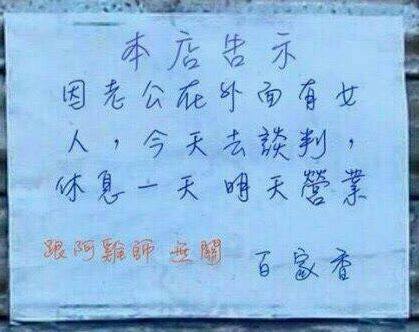 本店告示
因老公在外面有女
人,今天去談判,
休息一天 明天營業
跟阿雞師 無關
百家香